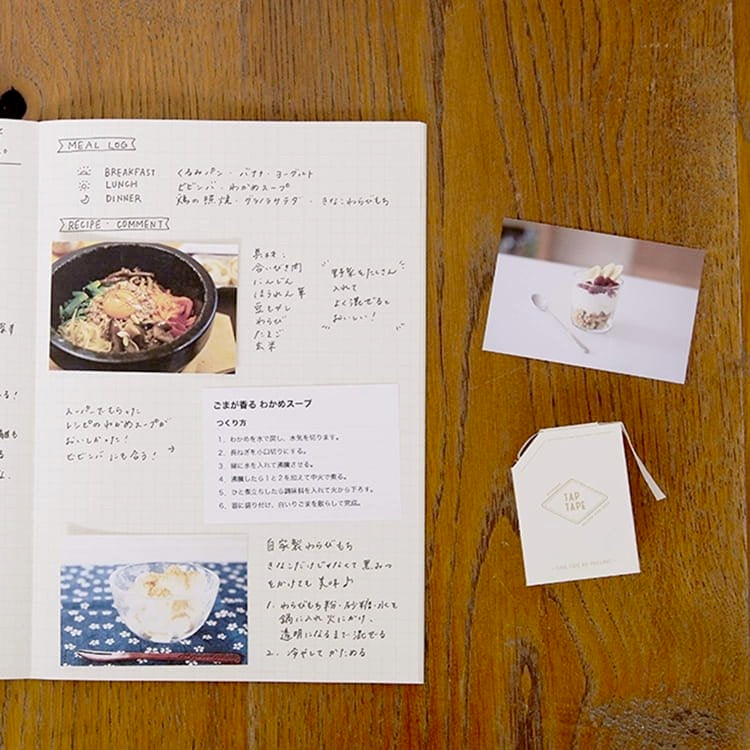 MEAL LOG
BREAKFAST くるみパン・バナナ・ヨーグルト
LUNCH ビビンバ・わかめスープ
DINNER 鶏の照焼・グラノラサラダ・きなこわらびもち
RECIPE・COMMENT
具材：
合いびき肉
にんじん
ほうれん草
豆もやし
わらび
たまご
玄米
野菜をたくさん
入れて
よく混ぜると
おいしい！
スーパーでもらった
レシピのわかめスープが
おいしかった！
ビビンバにも合う！
ごまが香る わかめスープ
つくり方
1、わかめを水で戻し、水気を切ります。
2、長ねぎを小口切りにする。
3、鍋に水を入れて沸騰させる。
4、沸騰したら1と2を加えて中火で煮る。
5、ひと煮立ちしたら調味料を入れて火から下ろす。
6、器に盛り付け、白いりごまを散らして完成。
自家製わらびもち
きなこだけじゃなくて黒みつ
をかけても美味♪
1. わらびもち粉・砂糖・水を
鍋に入れ火にかけ、
透明になるまで混ぜる
2. 冷やしてかためる
TAP
TAPE